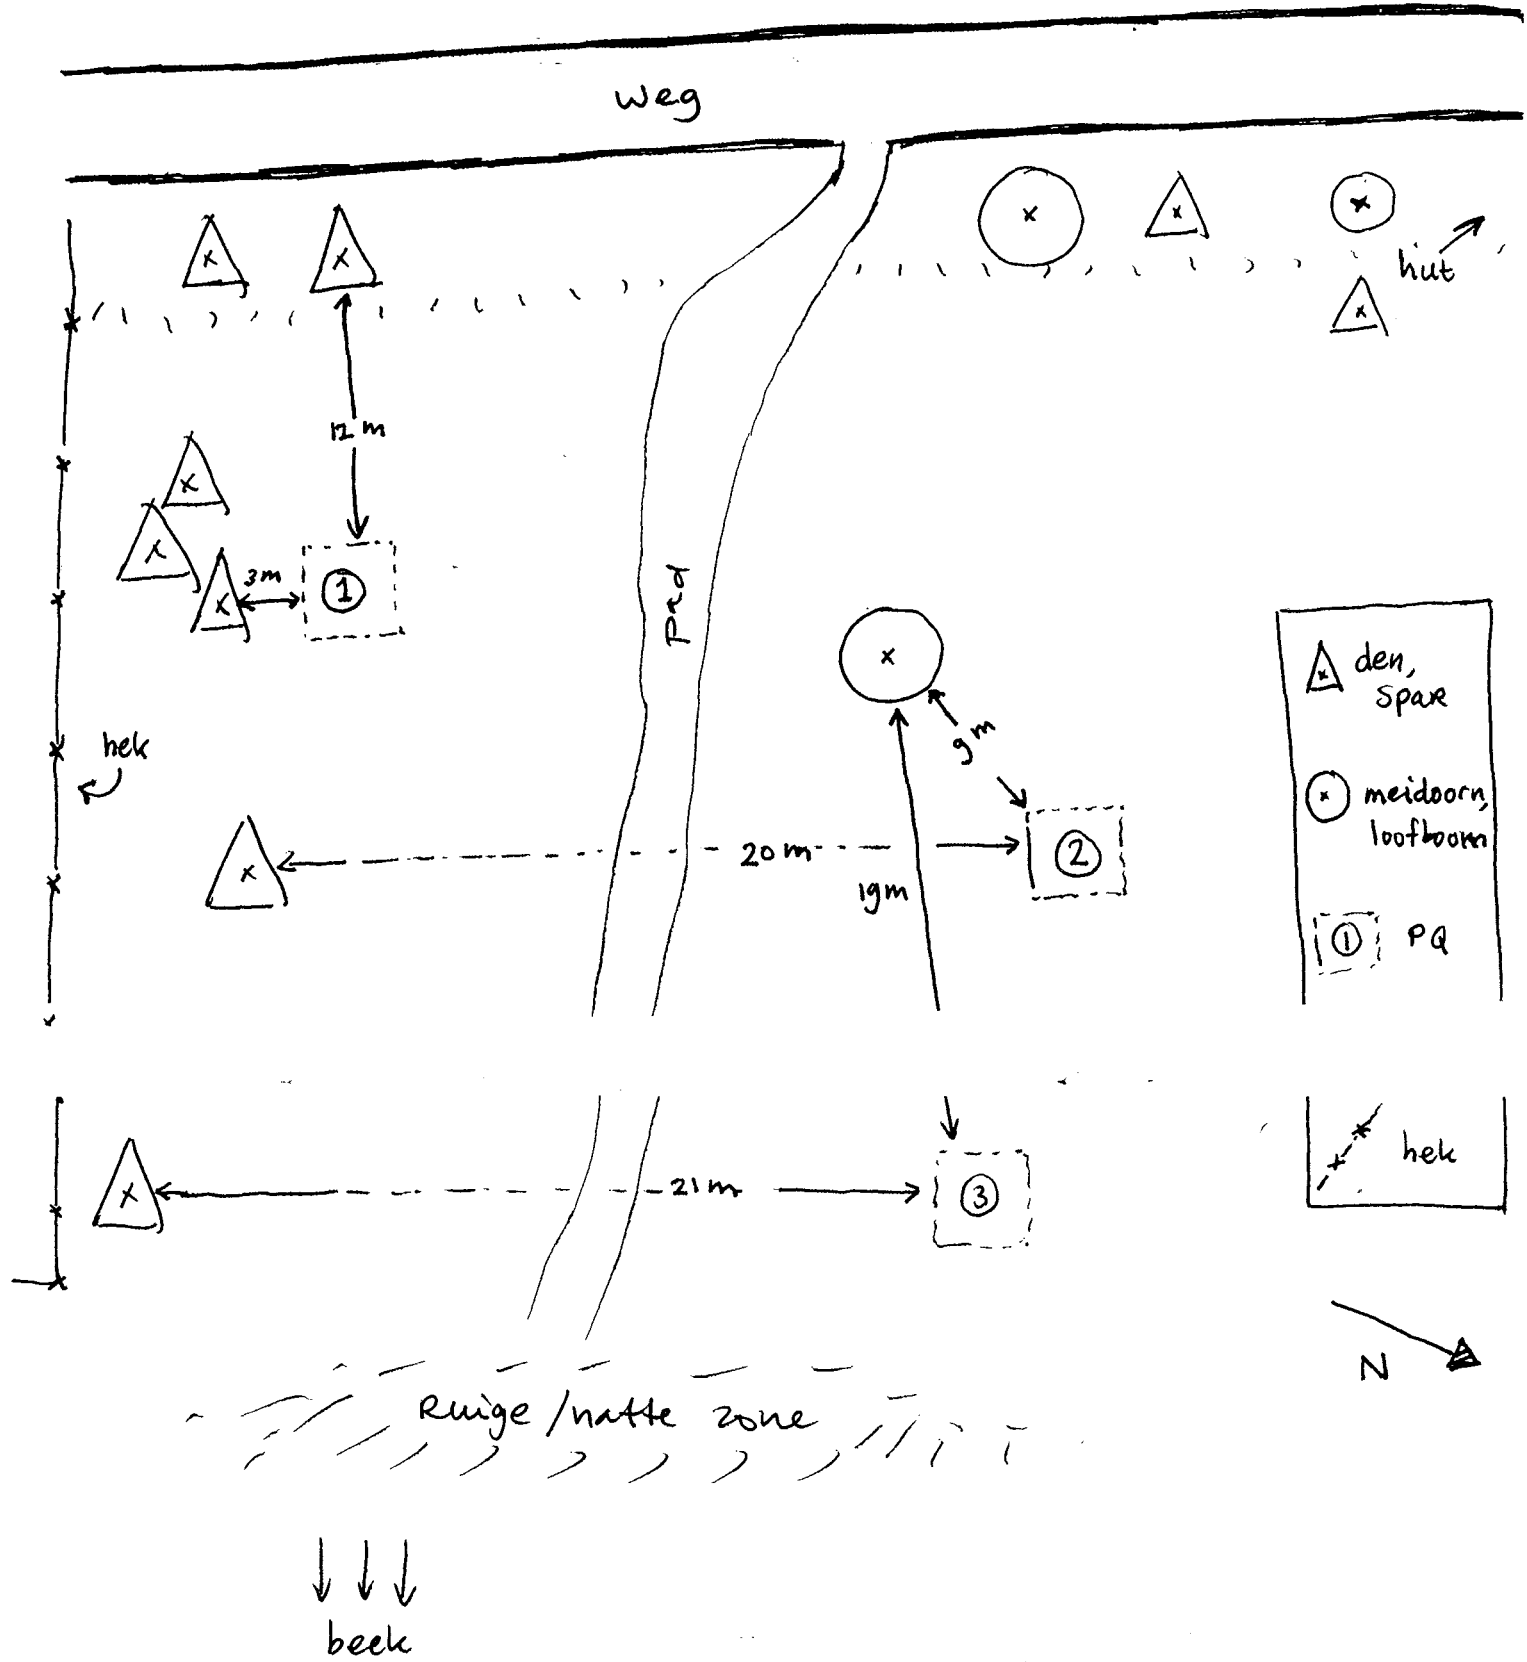 weg
hut
12 m
3m
1
pad
hek
9 m
20 m
2
19m
21 m
3
den,
spar
meidoorn,
loofboom
1
PQ
hek
N
Ruige/natte zone
beek